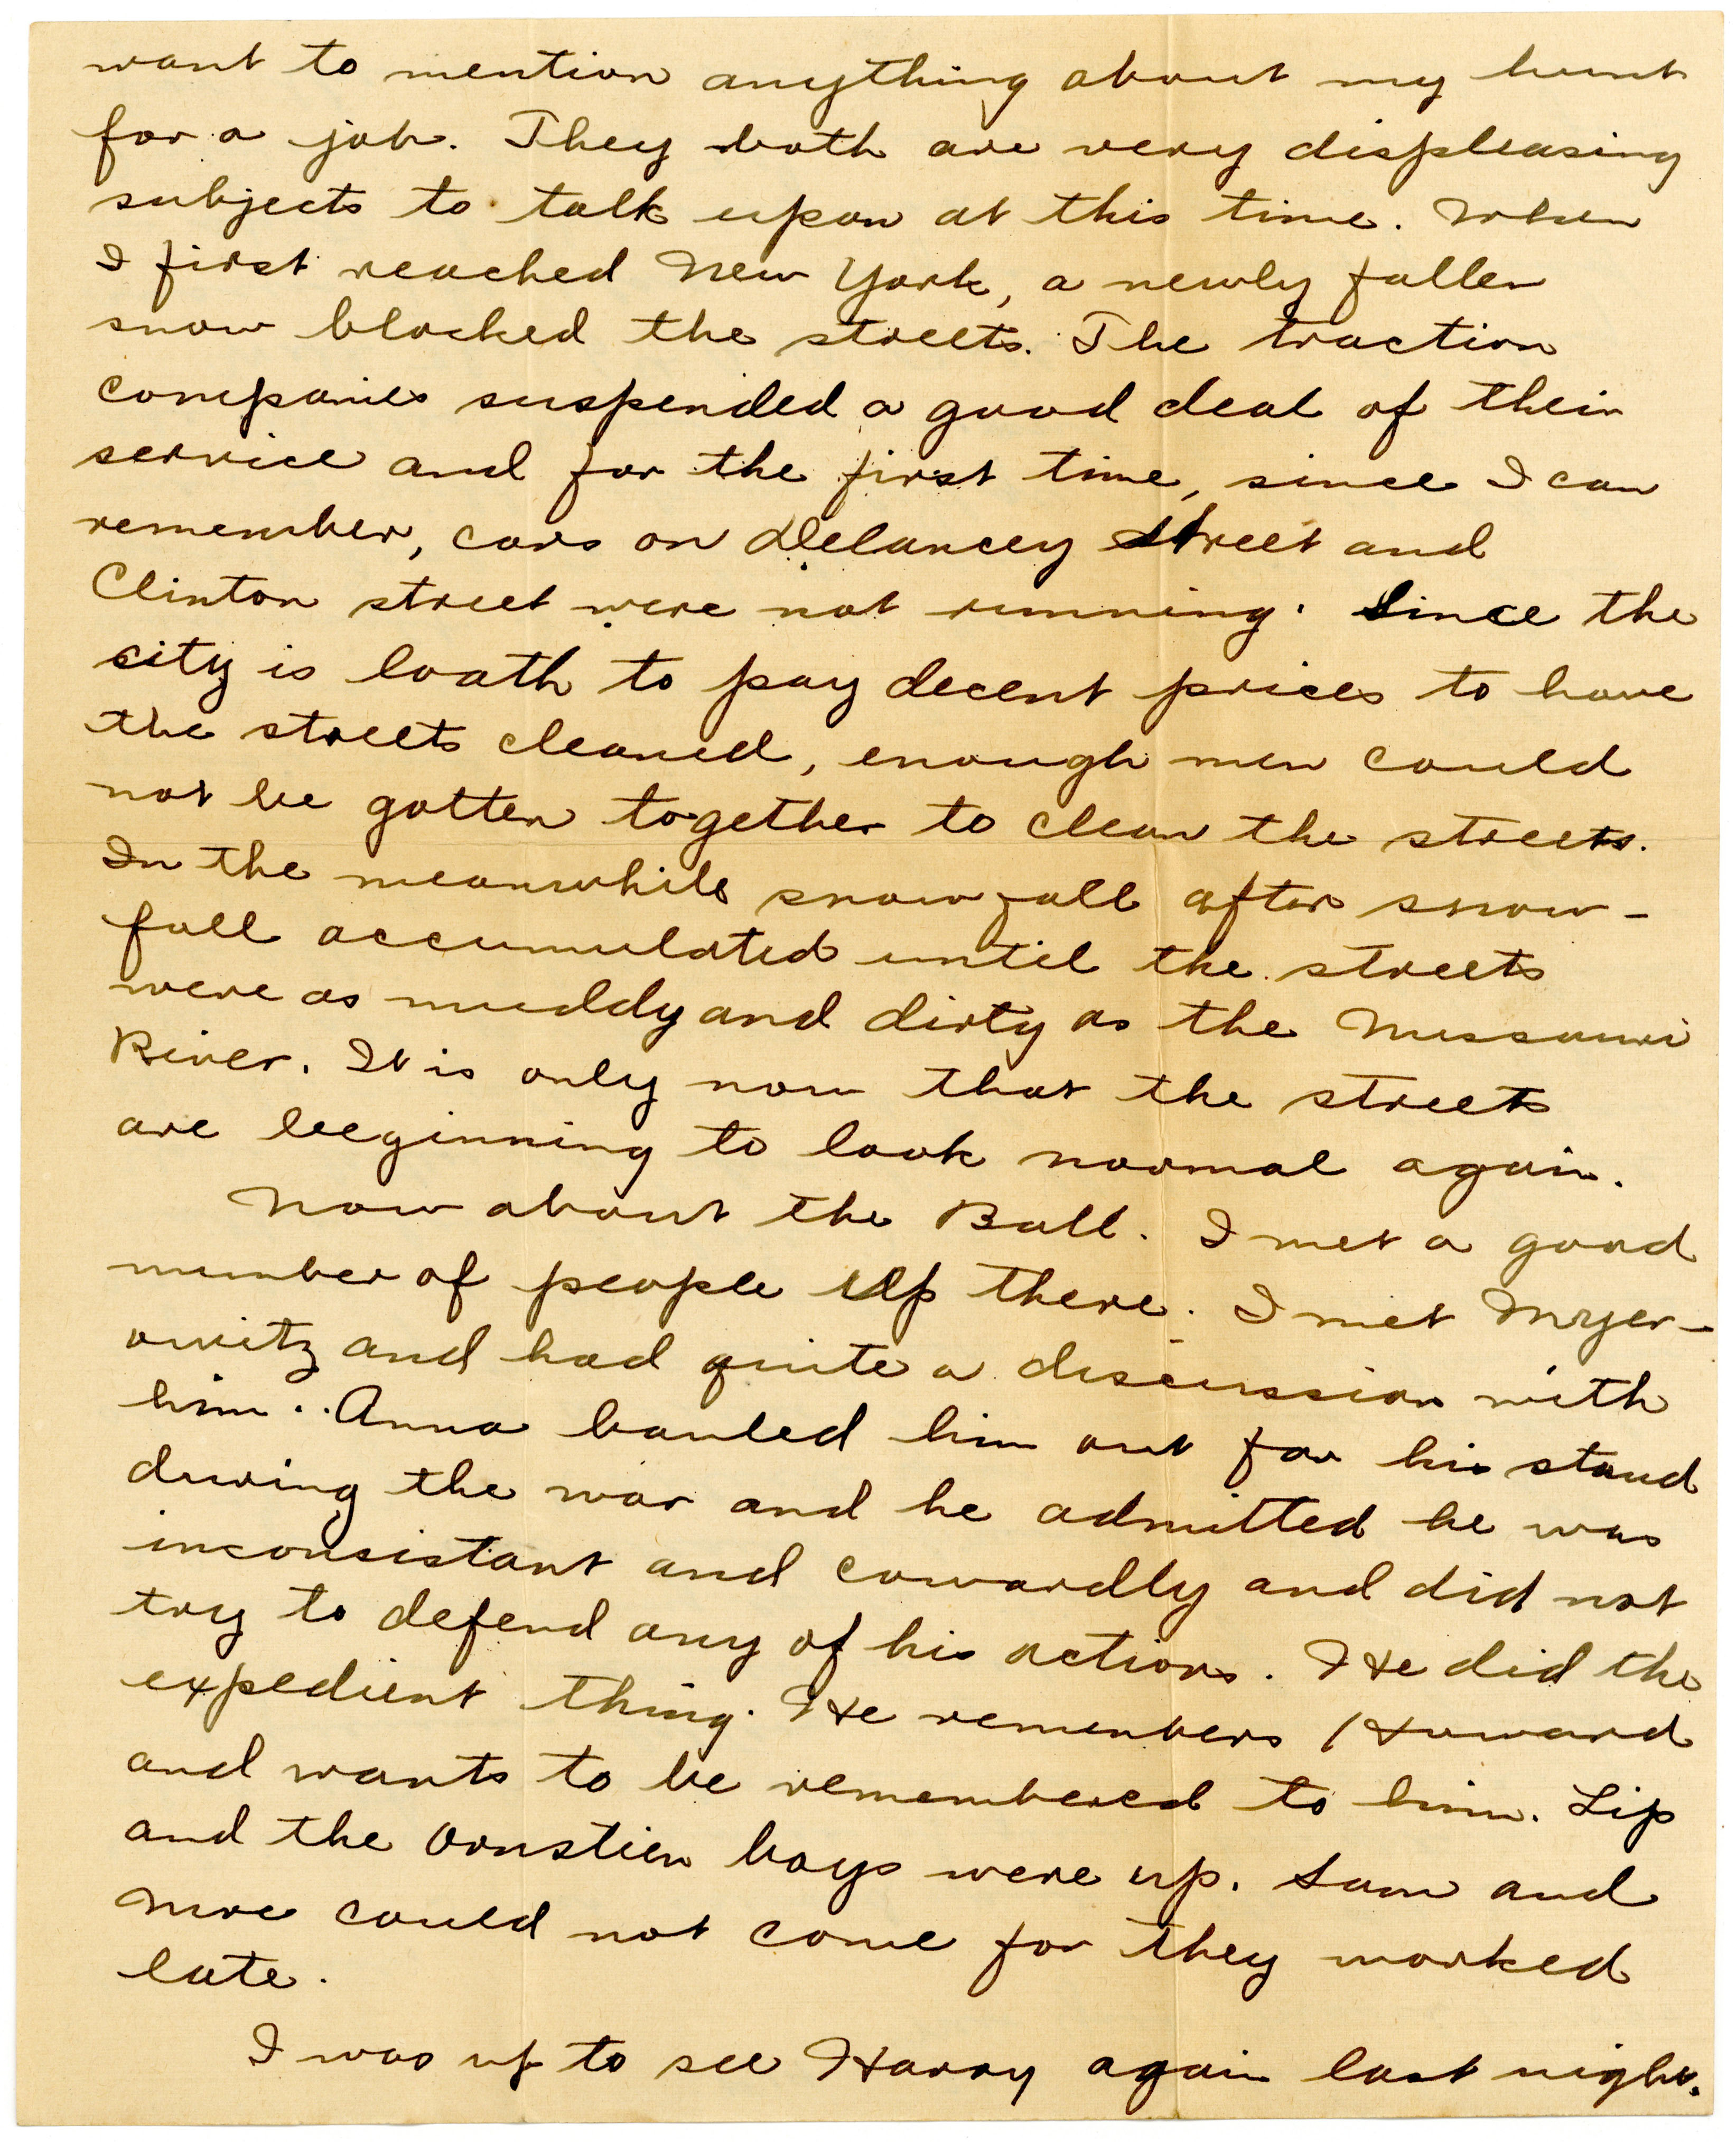 want to mention anything about my hunt
for a job. They both are very displeasing
subjects to talk upon at this time. When
I first reached New York, a newly fallen
snow blocked the streets. The traction
companies suspended a good deal of their
service and for the first time, since I can
remember, cars on Delancey Street and
Clinton street were not running. Since the
city is loath to pay decent prices to have
the streets cleaned, enough men could
not be gotten together to clean the streets.
In the meanwhile snowfall after snow-
fall accumulated until the streets
were as muddy and dirty as the Missouri
River. It is only now that the streets
are beeginning to look normal again.
Now about the Ball. I met a good
number of people up there. I met Myer-
owitz and had quite a discussion with
him. Anna bauled him out for his stand
during the war and he admitted he was
inconsistant and cowardly and did not
try to defend any of his actions. He did the
expedient thing. He remembers Howard
and wants to be remembered to him. Lip
and the Ornstien boys were up. Sam and
could not come for they worked
late.
I was up to see Harry again last night.